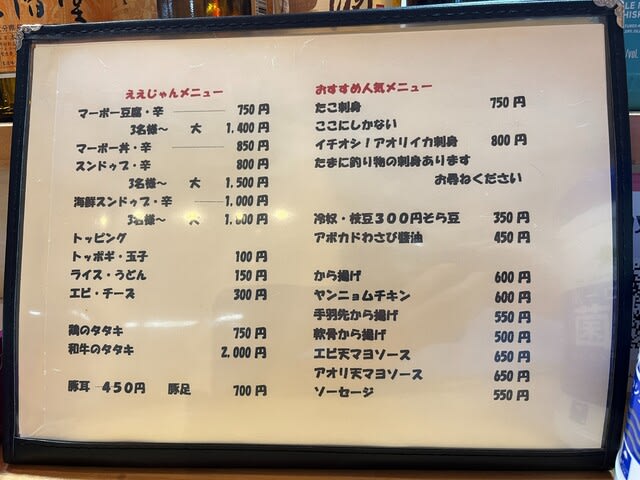 ええじゃんメニュー
マーボー豆腐・辛 750円
3名様〜 大 1,400円
マーボー丼・辛 850円
スンドゥブ・辛 800円
3名様〜 大 1,500円
海鮮スンドゥブ・辛 1,000円
3名様〜 大
トッピング
トッポギ・玉子 100円
ライス・うどん 150円
エビ・チーズ 300円
鶏のタタキ 750円
和牛のタタキ 2,000円
豚耳 450円 豚足 700円
おすすめ人気メニュー
たこ刺身 750円
ここにしかない
イチオシ!アオリイカ刺身 800円
たまに釣り物の刺身あります
お尋ねください
冷奴・枝豆300円そら豆 350円
アボカドわさび醤油 450円
から揚げ 600円
ヤンニョムチキン 600円
手羽先から揚げ 550円
軟骨から揚げ 500円
エビ天マヨソース 650円
アオリ天マヨソース 650円
ソーセージ 550円